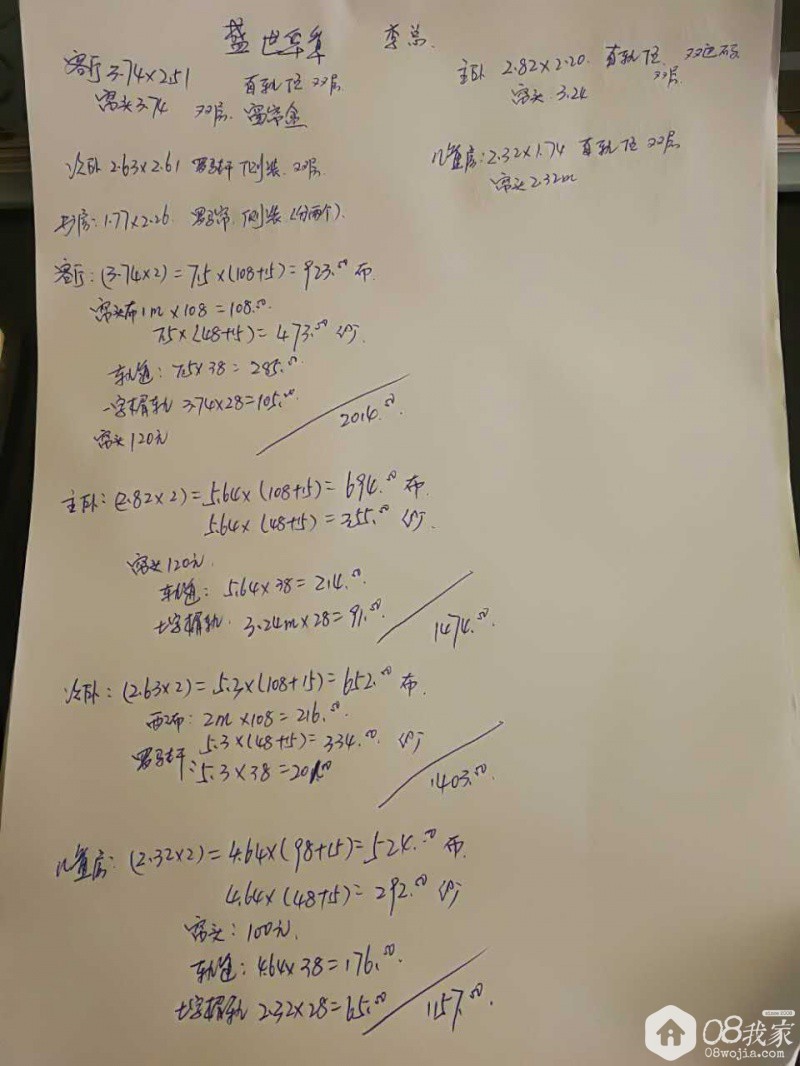 盛世华章 李总
客厅 3.74×2.51 直轨 顶 双层
窗头3.74 双层
主卧 2.82×2.20 直轨 顶 双层
窗头 3.24
次卧 2.63×2.61 罗马杆 侧装 双层
儿童房: 2.32×1.74 直轨 顶 双层
窗头 2.32m
书房: 1.77×2.26 罗马帘 侧装 (分两个).
客厅: (3.74×2) = 7.5×(108+15) = 923.00 布
窗头布 1m×108 = 108.00
7.5×(48+15) = 473.00 纱
轨道: 7.5×38 = 285.00
一字楣轨 3.74×28=105.00
窗头 120元
2014.00
主卧: (2.82×2) = 5.64×(108+15) = 694.00 布
5.64×(48+15) = 355.00 纱
窗头120元
轨道: 5.64×38 = 214.00
楣轨 3.24m×28 = 91.00
1474.00
次卧: (2.63×2) = 5.3×(108+15) = 652.00 布
布: 2m×108 = 216.00
5.3×(48+15) = 334.00 纱
罗马杆: 5.3×38 = 201.00
1403.00
儿童房: (2.32×2) = 4.64×(98+15) = 524.00 布
4.64×(48+15) = 292.00 纱
窗头: 100元
轨道: 4.64×38 = 176.00
楣轨 2.32×28 = 65.00
1157.00
08我家
08wojia.com